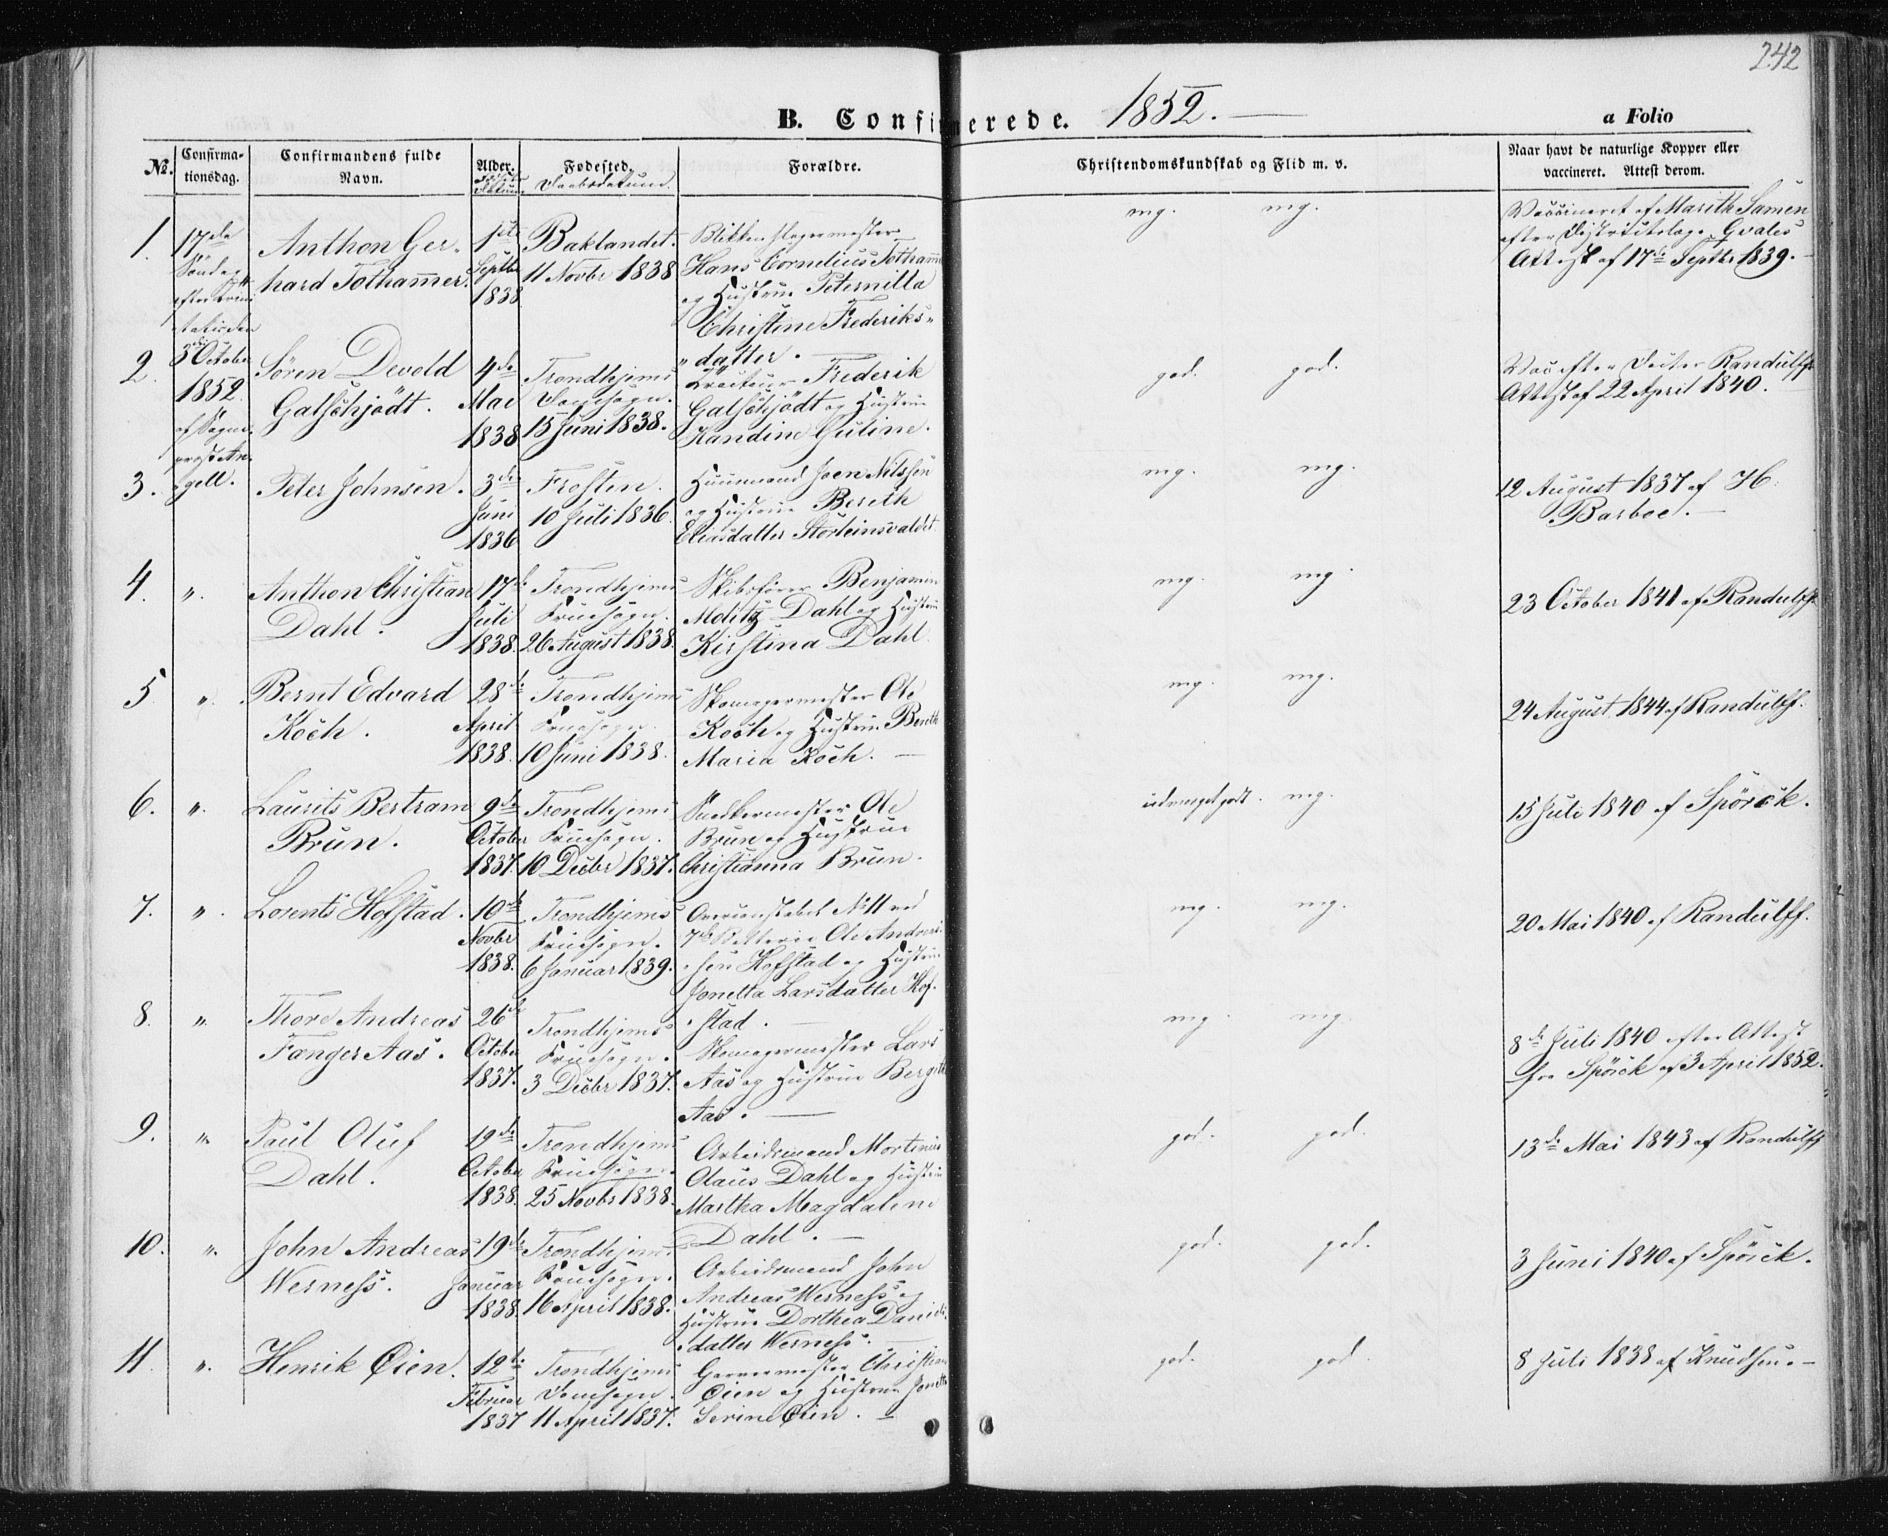 242
B. Confirmerede. 1852. —
a Folio
No.
Confirma-
tionsdag.
Confirmandens fulde
Navn.
Alder.
Fødested.
Daabsdatum.
Forældre.
Christendomskundskab og Flid m. v.
Naar havt de naturlige Kopper eller
vaccineret. Attest derom.
1.
17de
Søndag
efter Trini
tatis den
3die October
1852.
af Sogne-
prost An-
gell.
Anthon Ger-
hard Tothammer.
1ste
Septbr
1838
Baklandet.
11 Novbr 1838
Blikkenslagermester
Hans Cornelius Tothammer
og Hustrue Peternilla
Christine Frederiks-
datter. —
mg. mg.
Vaccineret af Marith Samen
efter Districtslæge Qvales
Attest af 17de Septbr 1839. —
2.
Søren Devold
Galschjödt.
4de
Mai
1838
Trondhjems
Domsogn.
15 Juni 1838.
Frederik
Galschjödt og Hustrue
Kandine Guline.
god. god.
Vac. efter Doctor Randulffs
Attest af 22 April 1840.
3.
Peter Johnsen.
3de
Juni
1836
Frosten.
10 Juli 1836.
Huusmand Joen Nilssen
og Hustrue Bereth
Eliasdatter Storleinsvaldet
mg. mg.
12 August 1837 af H.
Barboe. —
4. ".
Anthon Christian
Dahl.
17de
Juli
1838.
Trondhjems
Fruesogn.
26 August 1838.
Skibsfører Benjamin
Moritz Dahl og Hustrue
Kirstina Dahl.
mg. mg.
23 October 1841 af Randulff.
5 ".
Bernt Edvard
Koch.
28de
April
1838.
Trondhjems
Fruesogn.
10 Juni 1838.
Skomagermester Ole
Koch og Hustrue Bereth
Maria Koch. —
mg. mg.
24 August 1844 af Randulff.
6. ".
Laurits Bertram
Brun.
9de
October
1837.
Trondhjems
Fruesogn.
10 Decbr 1837.
Snedkermester Ole
Brun og Hustrue
Christianna Brun.
udmærket godt. mg.
15 Juli 1840 af Spörck.
7. ".
Lorents Hofstad.
10de
Novbr
1838.
Trondhjems
Fruesogn.
6 Januar 1839.
Overconstabel No 11 ved
7de Batterie Ole Andrea-
sen Hofstad og Hustrue
Jonetta Larsdatter Hof-
stad. —
mg. mg.
20 Mai 1840 af Randulff.
8. ".
Thore Andreas
Fanger Aas.
26de
October
1837.
Trondhjems
Fruesogn.
3 Decbr 1837.
Skomagermester Lars
Aas og Hustrue Bergith
Aas. —
mg. mg.
8de Juli 1840 efter Attest
fra Spörck af 3 April 1852.
9. ".
Paul Oluf
Dahl.
19de
October
1838.
Trondhjems
Fruesogn.
25 Novbr 1838.
Arbeidsmand Mortinus
Olaus Dahl og Hustrue
Martha Magdalene
Dahl. —
god. god.
13de Mai 1843 af Randulff
10. ".
John Andreas
Werness.
19de
Januar
1838.
Trondhjems
Fruesogn.
16 April 1838.
Arbeidsmand John
Andreas Werness og
Hustrue Dorthea Daniels-
datter Werness. —
god. god.
3 Juni 1840 af Spörck.
11. ".
Henrik Øien.
12te
Februar
1837
Trondhjems
Domsogn.
11 April 1837.
Garvermester Christian
Øien og Hustrue Joneth
Serine Øien. —
god. god.
8 Juli 1838 af Knudsen. —